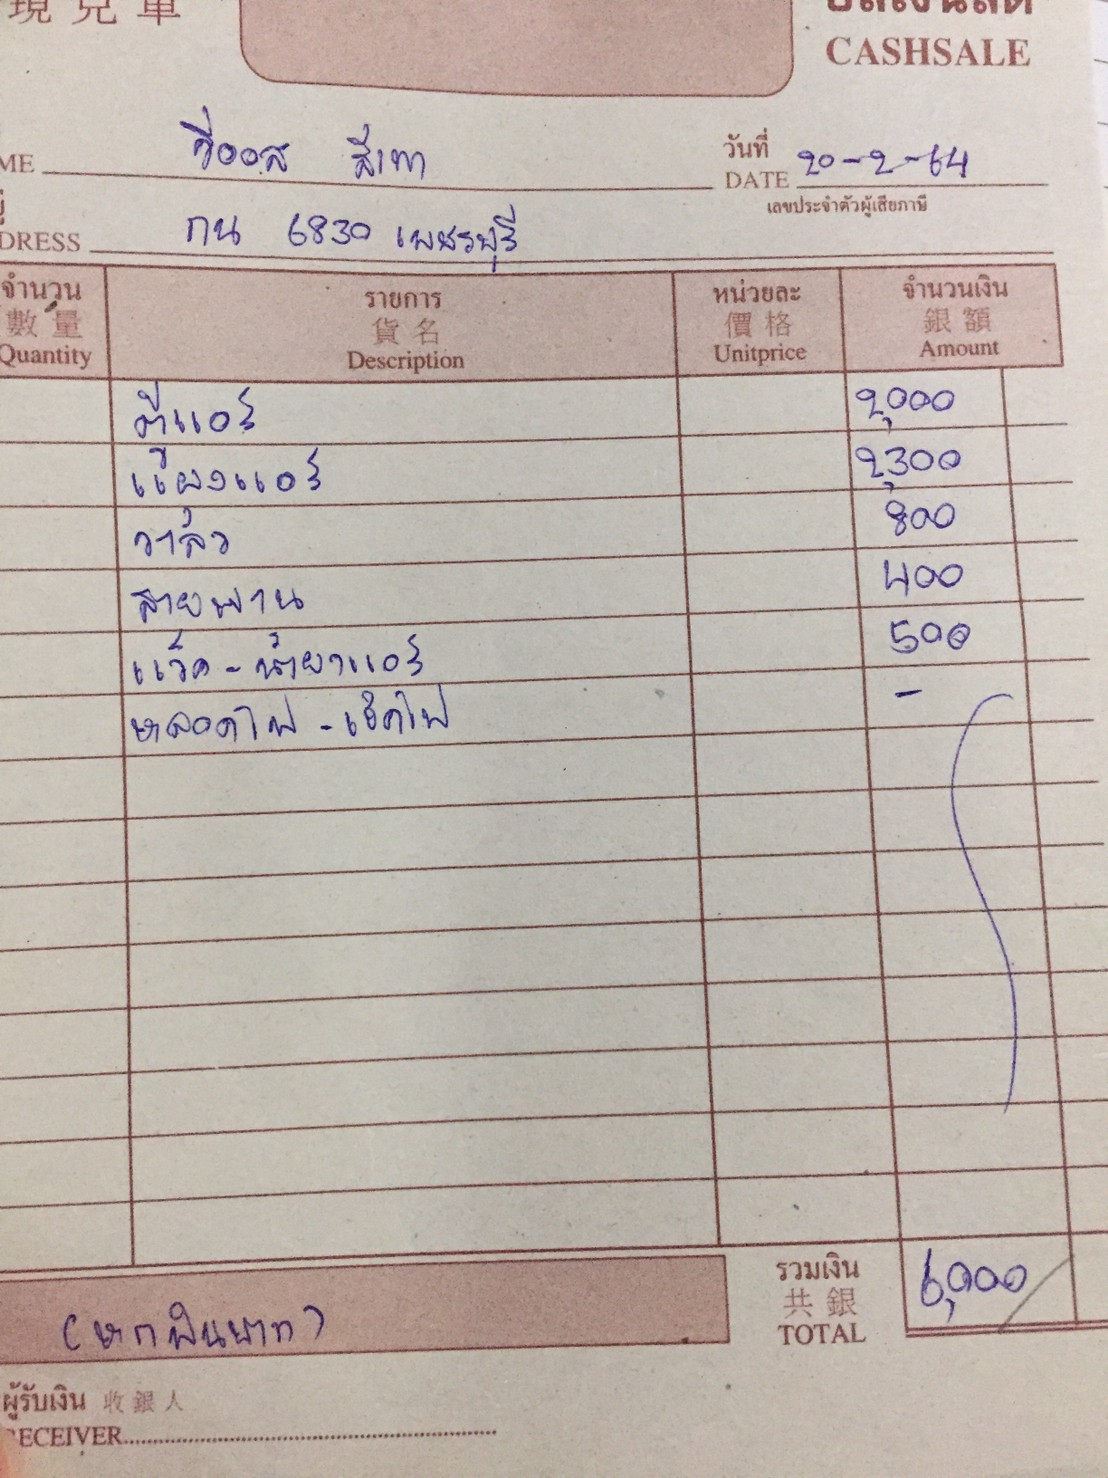 現兌單 บิลเงินสด
CASHSALE
ME วีออส สีเทา วันที่ DATE 20-2-64
เลขประจำตัวผู้เสียภาษี
DRESS กน 6830 เพชรบุรี
จำนวน รายการ หน่วยละ จำนวนเงิน
數量 貨名 價格 銀額
Quantity Description Unitprice Amount
ตู้แอร์ 2,000
แผงแอร์ 2,300
วาล์ว 800
สายพาน 400
แว๊ค - น้ำยาแอร์ 500
หลอดไฟ - เช็คไฟ -
รวมเงิน
共銀
TOTAL 6,000
(หกพันบาท)
ผู้รับเงิน 收銀人
RECEIVER